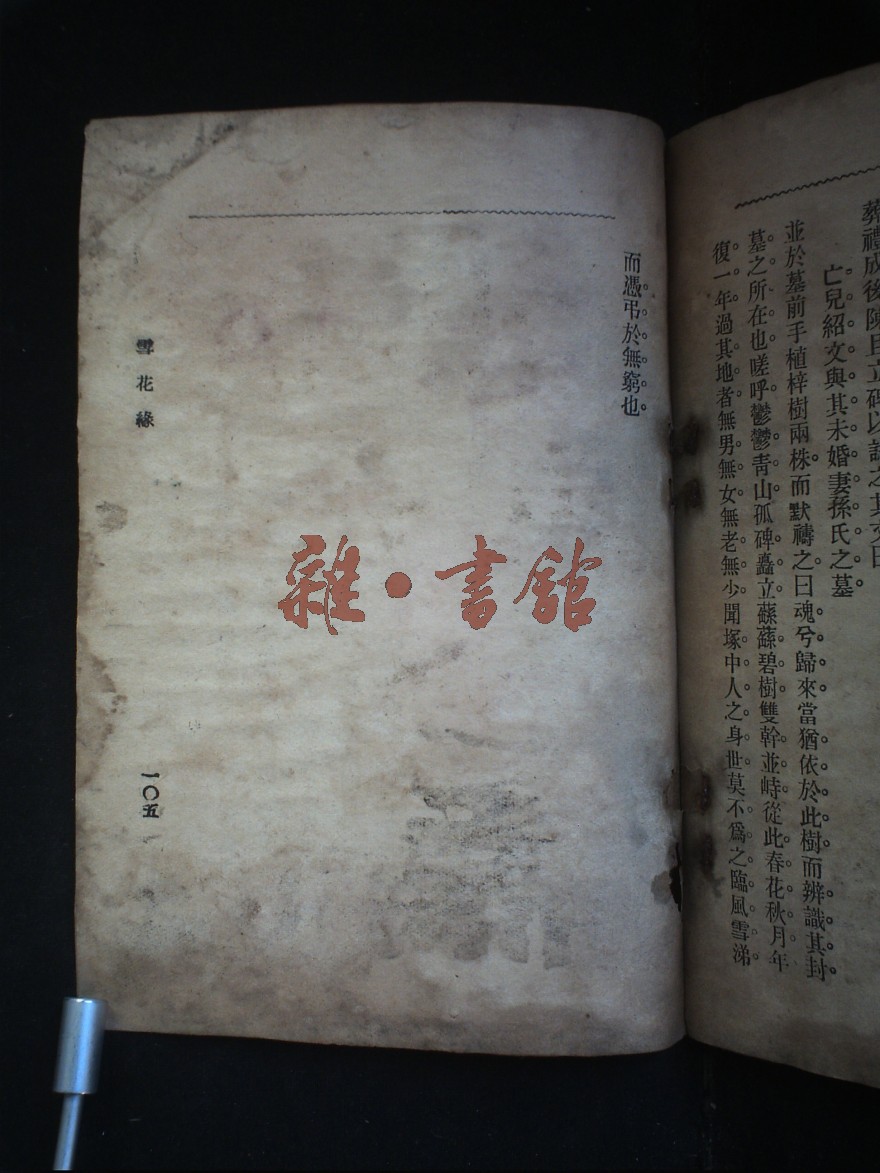 葬禮成後陳且立碑以誌之其文曰
亡兒紹文與其未婚妻孫氏之墓
並於墓前手植梓樹兩株而默禱之曰魂兮歸來當猶依於此樹而辨識其封
墓之所在也嗟呼鬱鬱青山孤碑矗立蘇蘇碧樹雙幹並峙從此春花秋月年
復一年過其地者無男無女無老無少聞塚中人之身世莫不爲之臨風雪涕
而憑弔於無窮也
雪花緣
一〇五
雜·書館